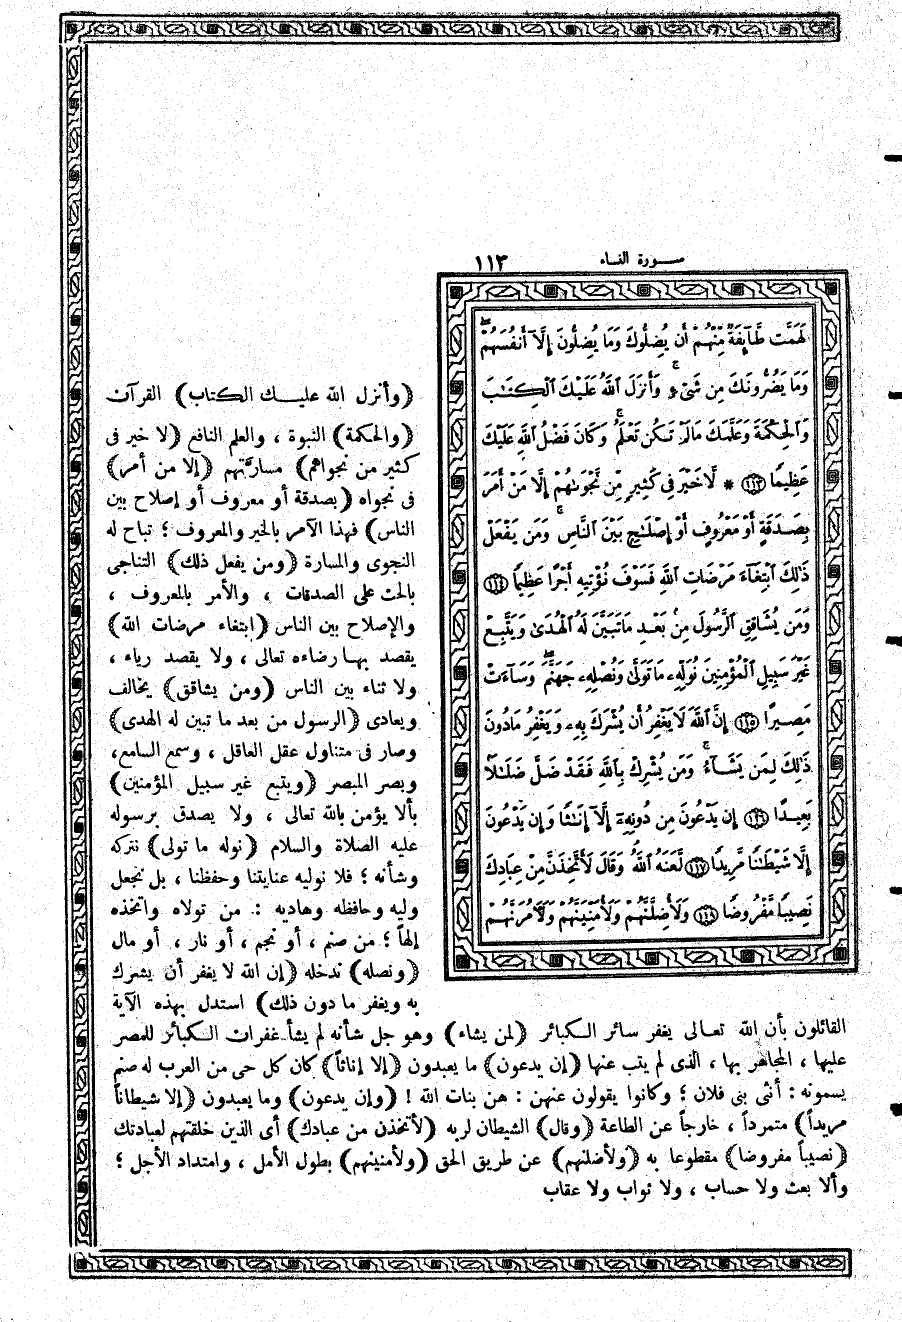 سورة النساء ١١٣
لَهَمَّت طَّآئِفَةٌ مِّنْهُمْ أَن يُضِلُّوكَ وَمَا يُضِلُّونَ إِلَّآ أَنفُسَهُمْۖ
وَمَا يَضُرُّونَكَ مِن شَىْءٍۚ وَأَنزَلَ ٱللَّهُ عَلَيْكَ ٱلْكِتَٰبَ
وَٱلْحِكْمَةَ وَعَلَّمَكَ مَا لَمْ تَكُن تَعْلَمُۚ وَكَانَ فَضْلُ ٱللَّهِ عَلَيْكَ
عَظِيمًا ﴿١١٣﴾ * لَّا خَيْرَ فِى كَثِيرٍ مِّن نَّجْوَىٰهُمْ إِلَّا مَنْ أَمَرَ
بِصَدَقَةٍ أَوْ مَعْرُوفٍ أَوْ إِصْلَٰحٍۭ بَيْنَ ٱلنَّاسِۚ وَمَن يَفْعَلْ
ذَٰلِكَ ٱبْتِغَآءَ مَرْضَاتِ ٱللَّهِ فَسَوْفَ نُؤْتِيهِ أَجْرًا عَظِيمًا ﴿١١٤﴾
وَمَن يُشَاقِقِ ٱلرَّسُولَ مِنۢ بَعْدِ مَا تَبَيَّنَ لَهُ ٱلْهُدَىٰ وَيَتَّبِعْ
غَيْرَ سَبِيلِ ٱلْمُؤْمِنِينَ نُوَلِّهِۦ مَا تَوَلَّىٰ وَنُصْلِهِۦ جَهَنَّمَۖ وَسَآءَتْ
مَصِيرًا ﴿١١٥﴾ إِنَّ ٱللَّهَ لَا يَغْفِرُ أَن يُشْرَكَ بِهِۦ وَيَغْفِرُ مَا دُونَ
ذَٰلِكَ لِمَن يَشَآءُۚ وَمَن يُشْرِكْ بِٱللَّهِ فَقَدْ ضَلَّ ضَلَٰلًۢا
بَعِيدًا ﴿١١٦﴾ إِن يَدْعُونَ مِن دُونِهِۦٓ إِلَّآ إِنَٰثًا وَإِن يَدْعُونَ
إِلَّا شَيْطَٰنًا مَّرِيدًا ﴿١١٧﴾ لَّعَنَهُ ٱللَّهُۘ وَقَالَ لَأَتَّخِذَنَّ مِنْ عِبَادِكَ
نَصِيبًا مَّفْرُوضًا ﴿١١٨﴾ وَلَأُضِلَّنَّهُمْ وَلَأُمَنِّيَنَّهُمْ وَلَءَامُرَنَّهُمْ
(وأنزل الله عليك الكتاب) القرآن
(والحكمة) النبوة ، والعلم النافع (لا خير فى
كثير من نجواهم) مسارّتهم (إلا من أمر)
فى نجواه (بصدقة أو معروف أو إصلاح بين
الناس) فهذا الآمر بالخير والمعروف ؛ تباح له
النجوى والمسارة (ومن يفعل ذلك) التناجى
بالحث على الصدقات ، والأمر بالمعروف ،
والإصلاح بين الناس (ابتغاء مرضات الله)
يقصد بها رضاءه تعالى ، ولا يقصد رياء ،
ولا ثناء بين الناس (ومن يشاقق) يخالف
ويعادى (الرسول من بعد ما تبين له الهدى)
وصار فى متناول عقل العاقل ، وسمع السامع،
وبصر المبصر (ويتبع غير سبيل المؤمنين)
بألا يؤمن بالله تعالى ، ولا يصدق برسوله
عليه الصلاة والسلام (نوله ما تولى) نتركه
وشأنه ؛ فلا نوليه عنايتنا وحفظنا ، بل نجعل
وليه وحافظه وهاديه : من تولاه واتخذه
إلهاً ؛ من صنم ، أو نجم ، أو نار ، أو مال
(ونصله) ندخله (إن الله لا يغفر أن يشرك
به ويغفر ما دون ذلك) استدل بهذه الآية
القائلون بأن الله تعالى يغفر سائر الكبائر (لمن يشاء) وهو جل شأنه لم يشأ غفران الكبائر للمصر
عليها ، المجاهر بها ، الذى لم يتب عنها (إن يدعون) ما يعبدون (إلا إناثاً) كان كل حى من العرب له صنم
يسمونه : أنثى بنى فلان ؛ وكانوا يقولون عنهن : هن بنات الله ! (وإن يدعون) وما يعبدون (إلا شيطاناً
مريداً) متمرداً ، خارجاً عن الطاعة (وقال) الشيطان لربه (لأتخذن من عبادك) أى الذين خلقتهم لعبادتك
(نصيباً مفروضا) مقطوعا به (ولأضلنهم) عن طريق الحق (ولأمنينهم) بطول الأمل ، وامتداد الأجل ؛
وألا بعث ولا حساب ، ولا ثواب ولا عقاب